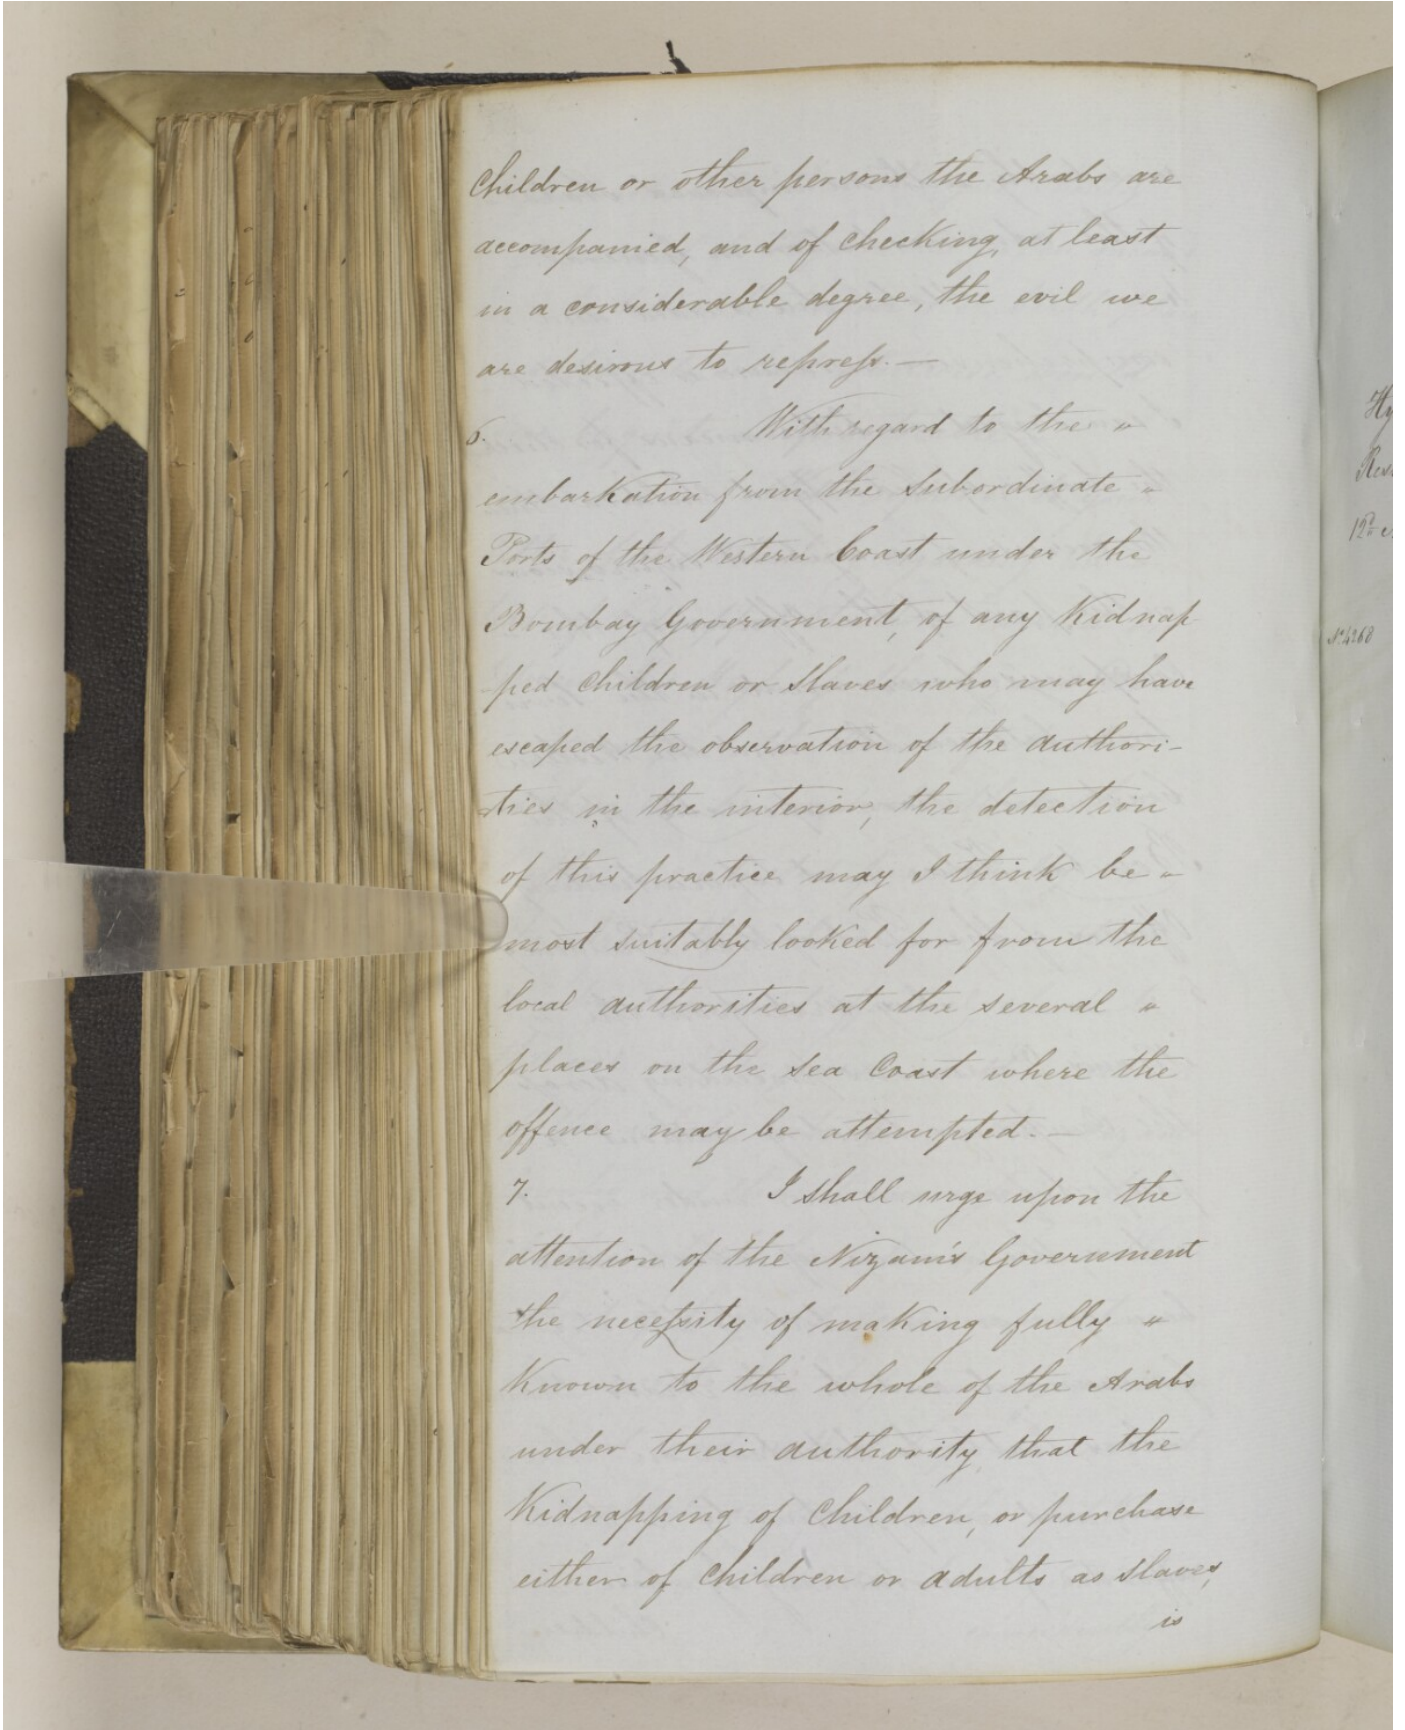 Children or other persons the Arabs are
accompanied, and of checking, at least
in a considerable degree, the evil we
are desirous to repress.—
6. With regard to the "
embarkation from the Subordinate "
Ports of the Western Coast under the
Bombay Government, of any Kidnap
-ped Children or Slaves who may have
escaped the observation of the Authori-
-ties in the interior, the detection
of this practice may I think be "
most suitably looked for from the
local authorities at the several "
places on the Sea Coast where the
offence may be attempted.—
7. I shall urge upon the
attention of the Nizam's Government
the necessity of making fully "
Known to the whole of the Arabs
under their authority, that the
Kidnapping of Children, or purchase
either of Children or adults as Slaves,
is
Hy
Res
No 4268